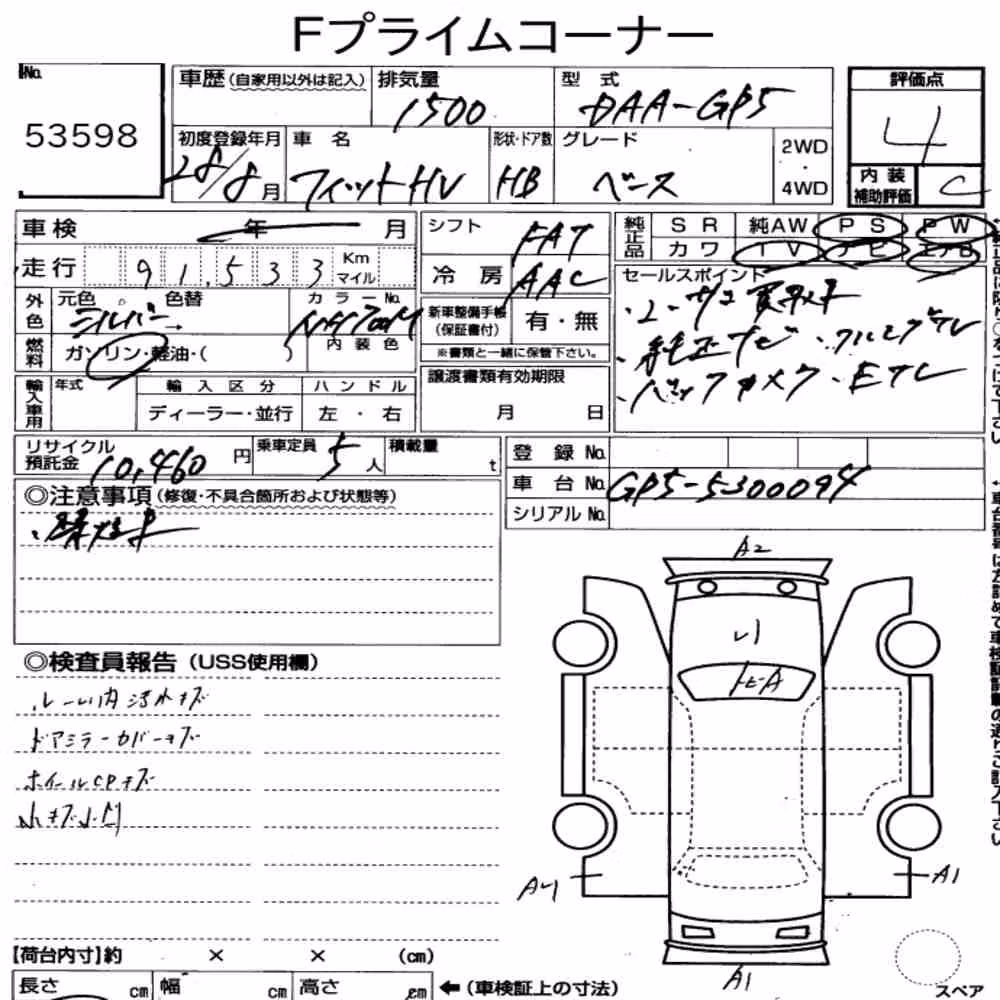 Fプライムコーナー
No.
53598
車歴(自家用以外は記入)
排気量
1500
型 式
DAA-GP5
評価点
4
内装補助評価
C
初度登録年月
28/8月
車 名
フィットHV
形状・ドア数
HB
グレード
ベース
2WD
・
4WD
車検 年 月
走行 91,533 Km マイル
シフト
FAT
冷房
AAC
純正品 SR 純AW PS PW
カワ TV ナビ エアB
外色
元色 色替
シルバー
カラーNo.
NH700M
内装色
燃料
ガソリン・軽油・( )
新車整備手帳(保証書付)
有・無
※書類と一緒に保管下さい。
セールスポイント
・ユーザー買取車
・純正ナビ・フルセグTV
・バックカメラ・ETC
輸入車用
年式
輸入区分
ディーラー・並行
ハンドル
左・右
譲渡書類有効期限
月 日
リサイクル預託金
10,460円
乗車定員
5人
積載量
t
登録No.
車台No.
GP5-5300094
シリアルNo.
◎注意事項(修復・不具合箇所および状態等)
◎検査員報告(USS使用欄)
ルーム内汚れキズ
ドアミラーカバーキズ
ホイールCPキズ
小キズ小凹
A2
A1
A1
【荷台内寸】約 × × (cm)
長さ cm
幅 cm
高さ cm
←(車検証上の寸法)
スペア